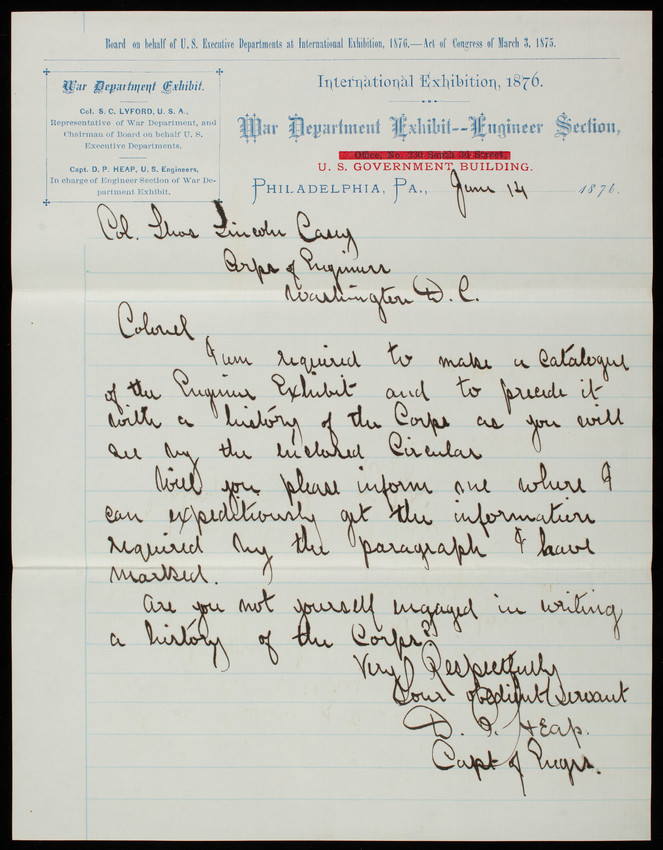 Board on behalf of U. S. Executive Departments at International Exhibition, 1876.—Act of Congress of March 3, 1875.
War Department Exhibit.
Col. S. C. LYFORD, U. S. A.,
Representative of War Department, and
Chairman of Board on behalf U. S.
Executive Departments.
Capt. D. P. HEAP, U. S. Engineers,
In charge of Engineer Section of War De-
partment Exhibit.
International Exhibition, 1876.
War Department Exhibit--Engineer Section,
Office, No. Street,
U. S. GOVERNMENT BUILDING.
PHILADELPHIA, PA., June 14 1876.
Col. Thos Lincoln Casey
Corps of Engineers
Washington D. C.
Colonel
I am required to make a catalogue
of the Engineer Exhibit and to precede it
with a history of the Corps as you will
see by the enclosed Circular
Will you please inform me where I
can expeditiously get the information
required by the paragraph I have
marked.
Are you not yourself engaged in writing
a history of the Corps?
Very Respectfully
Your obedient servant
D. P. Heap.
Capt of Engrs.